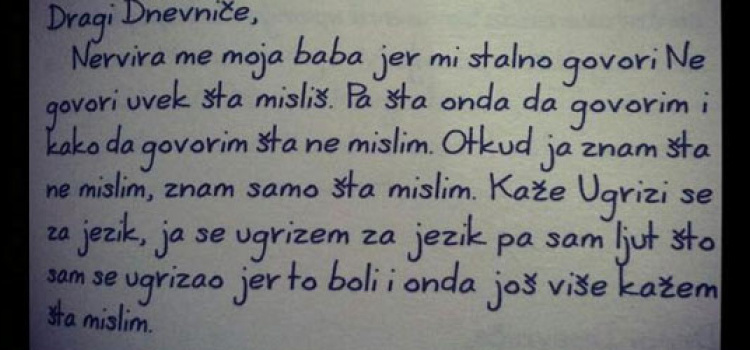 Dragi Dnevniče,
Nervira me moja baba jer mi stalno govori Ne
govori uvek šta misliš. Pa šta onda da govorim i
kako da govorim šta ne mislim. Otkud ja znam šta
ne mislim, znam samo šta mislim. Kaže Ugrizi se
za jezik, ja se ugrizem za jezik pa sam ljut što
sam se ugrizao jer to boli i onda još više kažem
šta mislim.